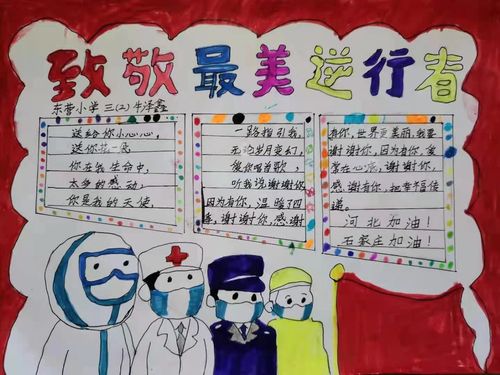 致敬最美逆行者
东营小学 三(2) 牛泽鑫
送给你小心心,
送你花一朵
你在我生命中,
太多的感动,
你是我的天使
一路指引我,
无论岁月变幻,
爱你唱首歌,
听我说谢谢你
因为有你,温暖了四
季,谢谢你,感谢
有你,世界更美丽,我要
谢谢你,因为有你,爱
常在心底,谢谢你,
感谢有你,把幸福传
递
河北加油!
石家庄加油!